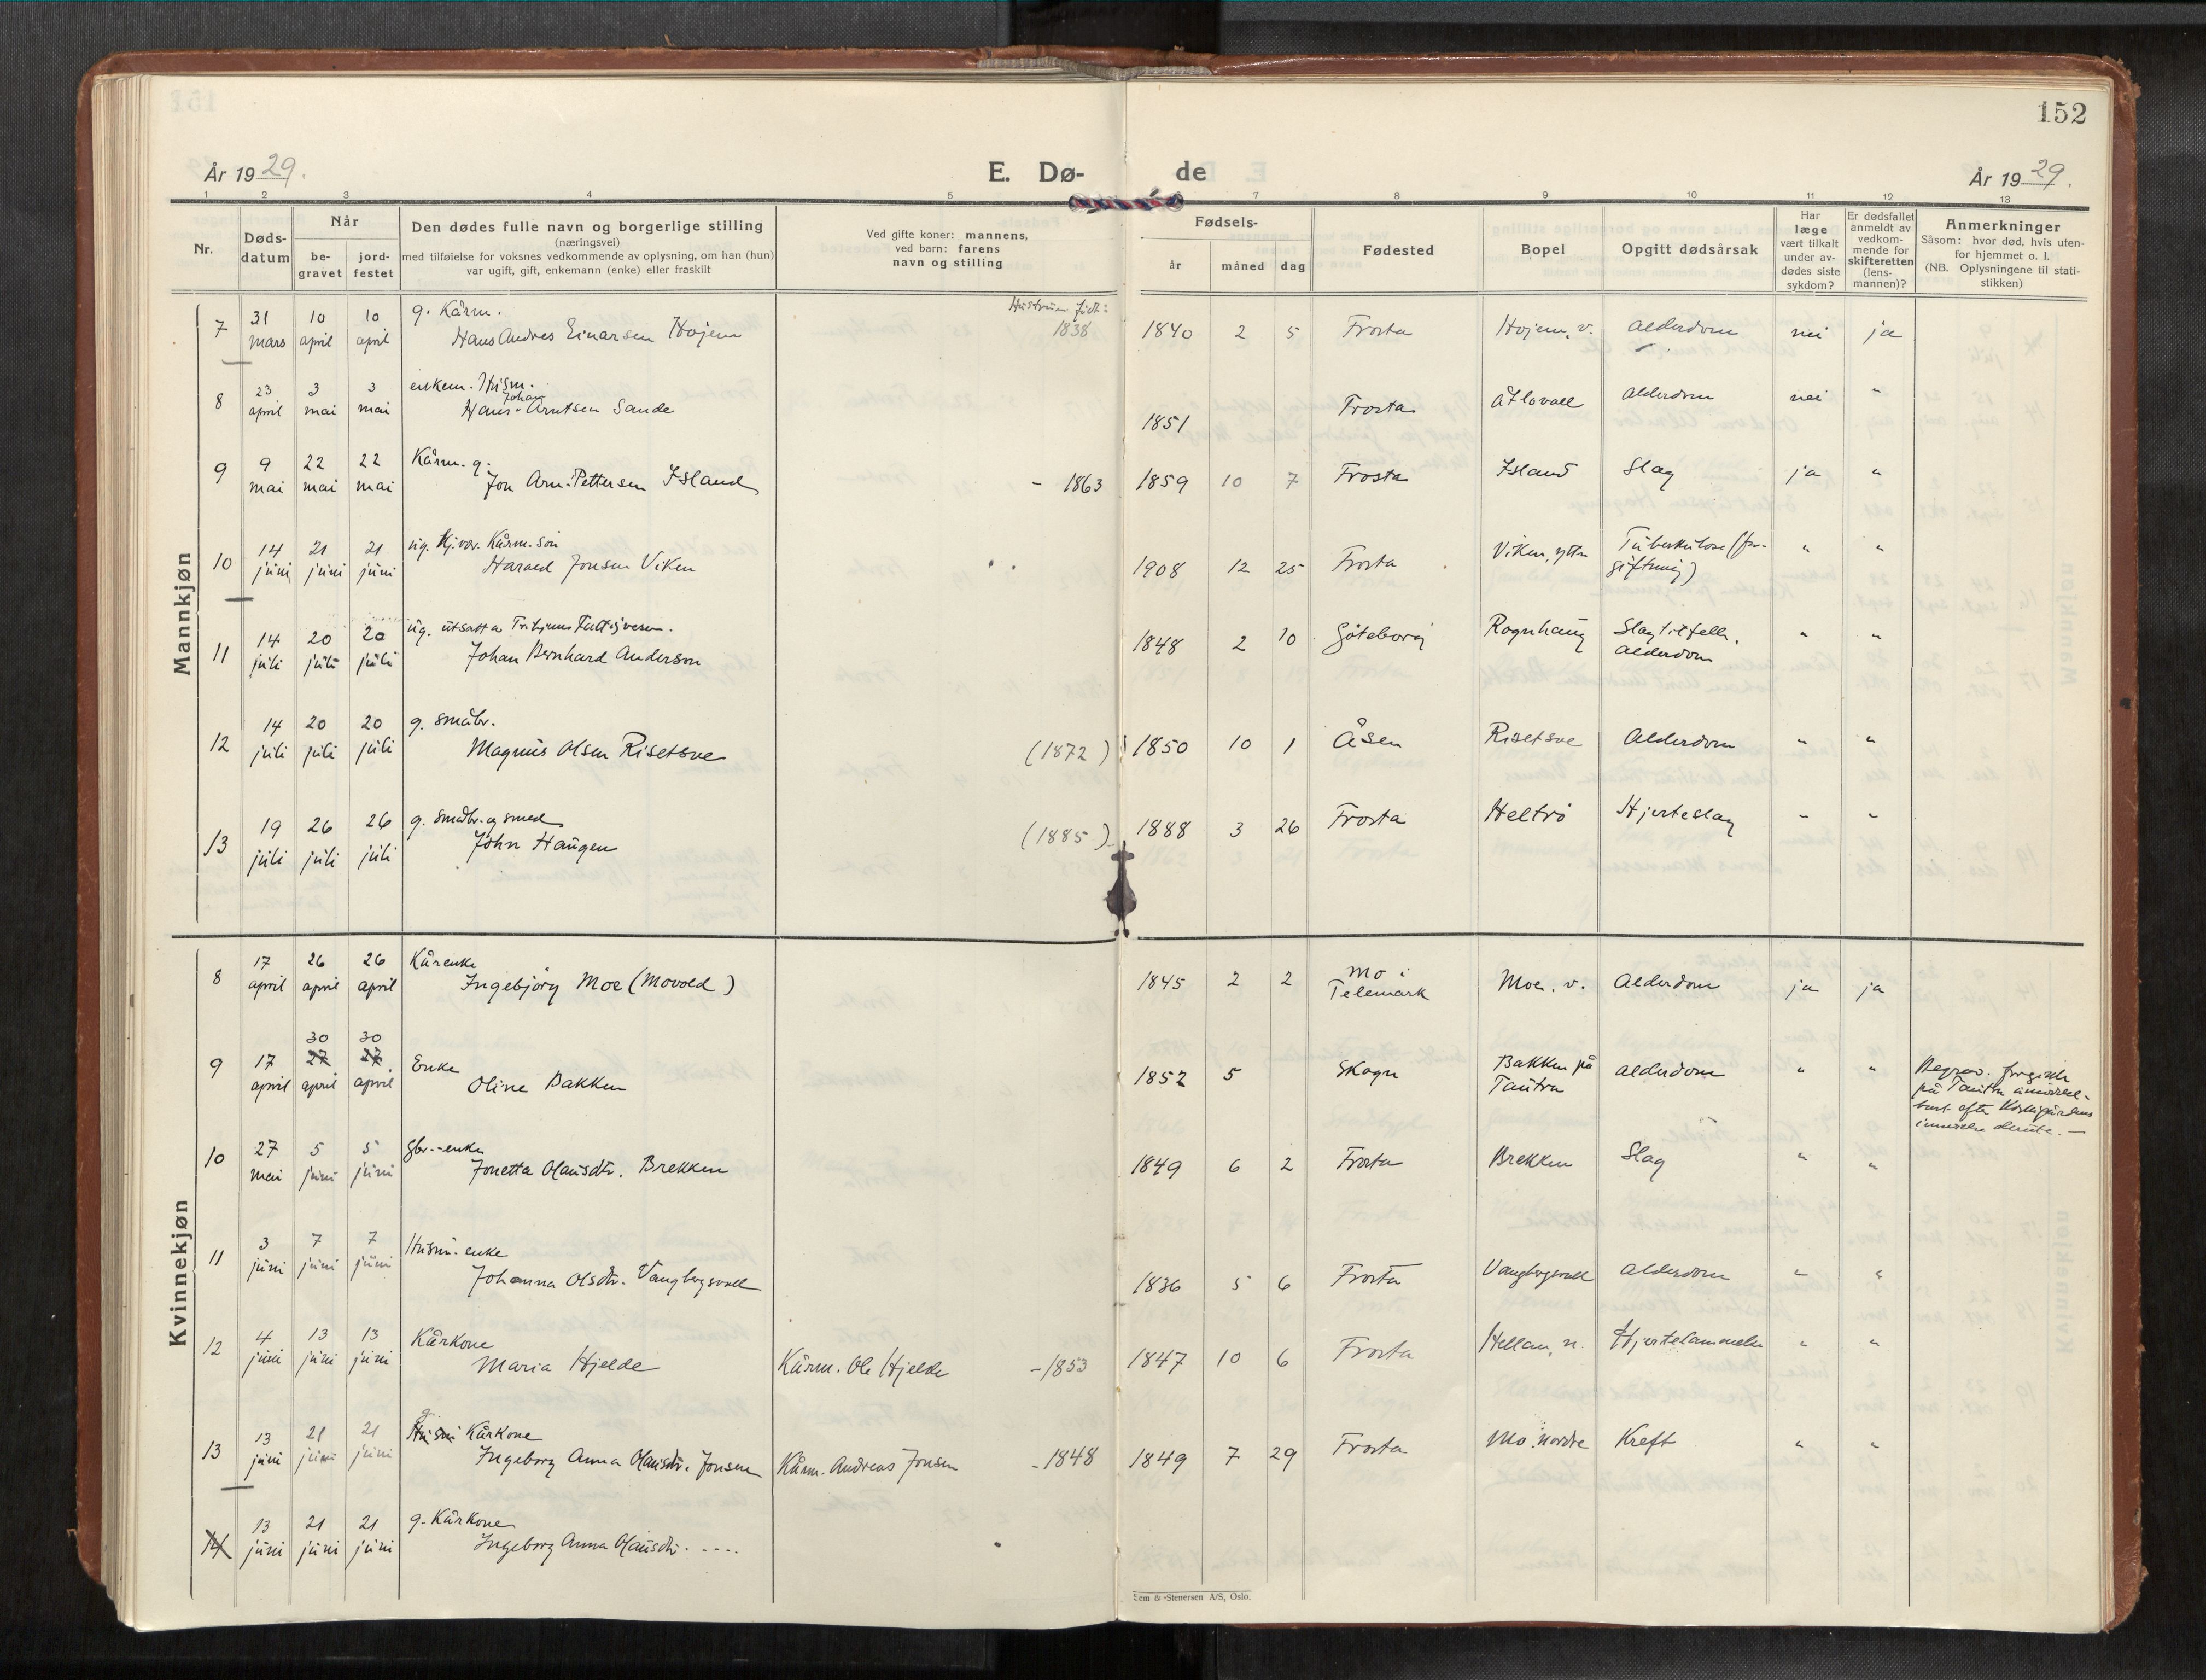 152
År 1929.
E. Dø-
de
År 1929.
1 2 3 4 5 7 8 9 10 11 12 13
Nr.
Døds-
datum
Når
be-
gravet
jord-
festet
Den dødes fulle navn og borgerlige stilling
(næringsvei)
med tilføielse for voksnes vedkommende av oplysning, om han (hun)
var ugift, gift, enkemann (enke) eller fraskilt
Ved gifte koner: mannens,
ved barn: farens
navn og stilling
Fødsels-
år
måned
dag
Fødested
Bopel
Opgitt dødsårsak
Har
læge
vært tilkalt
under av-
dødes siste
sykdom?
Er dødsfallet
anmeldt av
vedkom-
mende for
skifteretten
(lens-
mannen)?
Anmerkninger
Såsom: hvor død, hvis uten-
for hjemmet o. l.
(NB. Oplysningene til stati-
stikken)
Mannkjøn
31 10 10 g. Kårm. Hustruen født:
7 mars april april Hans Andres Einarsen Hojem 1838 1840 2 5 Frosta Hojem, v. Alderdom nei ja
23 3 3 enkem. Husm.
Johan
8 april mai mai Hans Arntsen Sande 1851 Frosta Alderdom nei "
9 22 22 Kårm. g.
9 mai mai mai Jon Arn. Pettersen Island - 1863 1859 10 7 Frosta Island Slag ja "
14 21 21 ug. Kårm. søn
10 juni juni juni Harald Jonsen Viken 1908 12 25 Frosta Viken, ytre Tuberkulose (for-
giftning) " "
14 20 20 ug. utsatt av
11 juli juli juli Johan Bernhard Anderson 1848 2 10 Göteborg Rognhaug Slagtilfelle.
Alderdom " "
14 20 20 g. småbr.
12 juli juli juli Magnus Olsen Risetsve (1872) 1850 10 1 Åsen Risetsve Alderdom " "
19 26 26 g. småbr. og smed
13 juli juli juli John Haugen (1885) 1888 3 26 Frosta Heltrö Hjerteslag " "
Kvinnekjøn
17 26 26 Kårenke
8 april april april Ingebjörg Moe (Movold) 1845 2 2 Mo i
Telemark Moen. v. Alderdom ja ja
30 30
17 27 27 Enke
9 april april april Oline Bakken 1852 5 Skogn Bakken på
Tautra Alderdom " " Begrav. foregikk
på Tautra umiddel-
bart efter Kirkegårdens
27 5 5 gbr.-enke
10 mai juni juni Jonetta Olausdtr. Brekken 1849 6 2 Frosta Brekken Slag " "
3 7 7 Husm.-enke
11 juni juni juni Johanna Olsdtr. Vangbergsvall 1836 5 6 Frosta Vangbergsvall Alderdom " "
4 13 13 Kårkone
12 juni juni juni Maria Hjelde Kårm. Ole Hjelde - 1853 1847 10 6 Frosta Hellan, n. Hjertelammelse " "
13 21 21 g. Husm Kårkone
13 juni juni juni Ingeborg Anna Olausdtr. Jonsen Kårm. Andreas Jonsen - 1848 1849 7 29 Frosta Mo. nordre Kreft " "
13 21 21 g. Kårkone
14 juni juni juni Ingeborg Anna Olausdtr. ....
Sem & Stenersen A/S, Oslo.